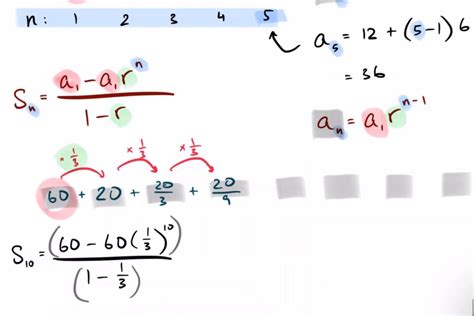 n: 1 2 3 4 5
a₅ = 12 + (5-1) 6
= 36
Sₙ = (a₁ - a₁rⁿ) / (1 - r)
aₙ = a₁rⁿ⁻¹
× 1/3 × 1/3 × 1/3
60 + 20 + 20/3 + 20/9
S₁₀ = (60 - 60(1/3)¹⁰) / (1 - 1/3)